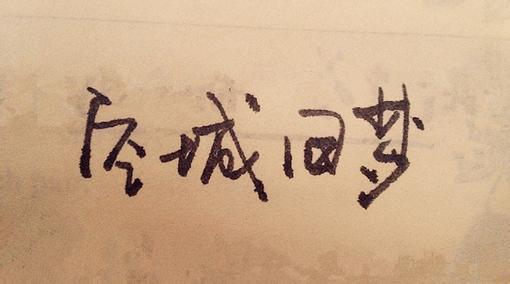 空城旧梦